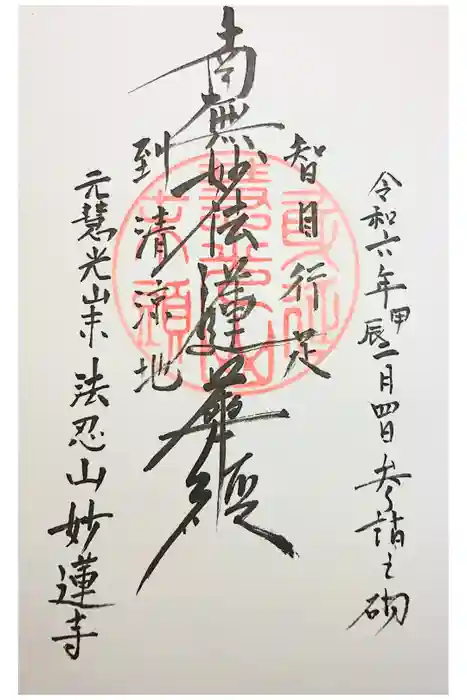 令和六年甲辰一月四日参詣之砌
智目行足
南無妙法蓮華経
到清涼地
元慧光山末 法忍山妙蓮寺